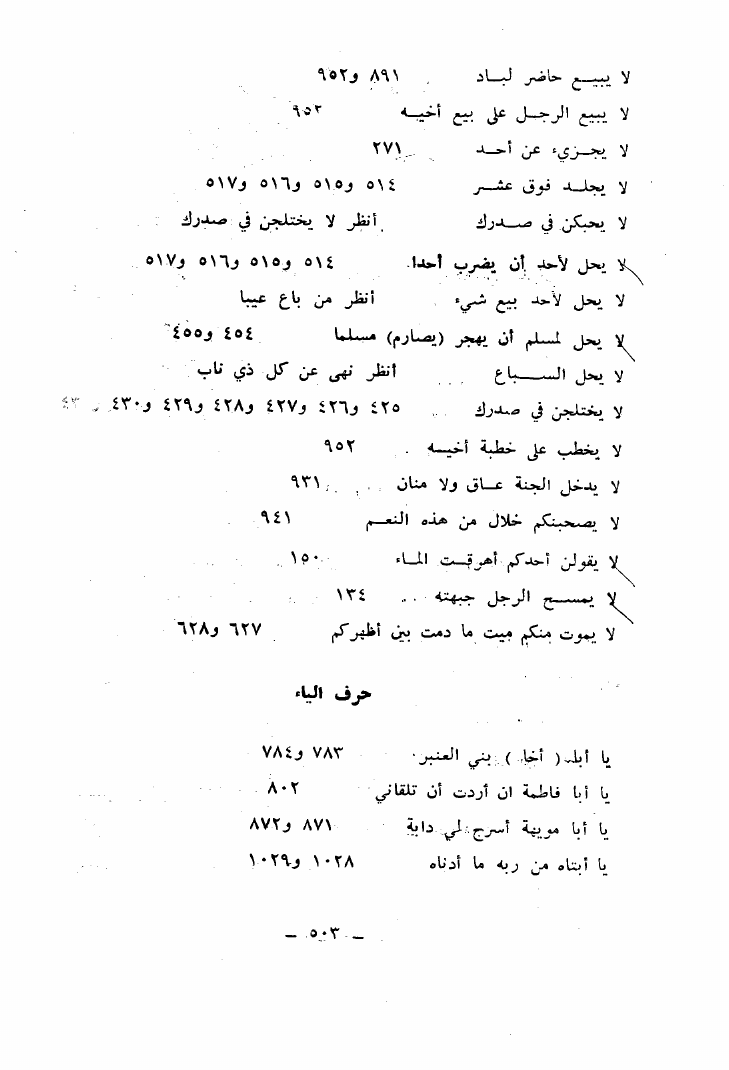 لا يبيع حاضر لباد ٨٩١ و٩٥٢
لا يبيع الرجل على بيع أخيه ٩٥٢
لا يجزيء عن أحد ٢٧١
لا يجلد فوق عشر ٥١٤ و٥١٥ و٥١٦ و٥١٧
لا يحبكن في صدرك أنظر لا يختلجن في صدرك
لا يحل لأحد أن يضرب أحدا ٥١٤ و٥١٥ و٥١٦ و٥١٧
لا يحل لأحد بيع شيء أنظر من باع عيبا
لا يحل لمسلم أن يهجر (يصارم) مسلما ٤٥٤ و٤٥٥
لا يحل السباع أنظر نهى عن كل ذي ناب
لا يختلجن في صدرك ٤٢٥ و٤٢٦ و٤٢٧ و٤٢٨ و٤٢٩ و٤٣٠ و
لا يخطب على خطبة أخيه ٩٥٢
لا يدخل الجنة عاق ولا منان ٩٣١
لا يصحبنكم خلال من هذه النعم ٩٤١
لا يقولن أحدكم أهرقت الماء ١٥٠
لا يمسح الرجل جبهته ١٣٤
لا يموت منكم ميت ما دمت بين أظهركم ٦٢٧ و٦٢٨
حرف الياء
يا أبا ( أخا ) بني العنبر ٧٨٣ و٧٨٤
يا أبا فاطمة ان أردت أن تلقاني ٨٠٢
يا أبا مويهة أسرج لي دابة ٨٧١ و٨٧٢
يا أبتاه من ربه ما أدناه ١٠٢٨ و١٠٢٩
— ٥٠٣ —